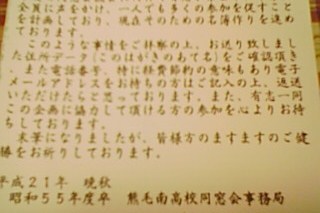 全員に声をかけ、一人でも多くの参加を促すこと
を計画しており、現在そのための名簿作りを進め
ております。
このような事情をご拝察の上、お送り致しまし
た住所データ(このはがきのあて名)をご確認頂き
、また電話番号、特に経費節約の意味もあり電子
メールアドレスをお持ちの方はご記入の上、返送
いただけたらと思っております。また、有志一同
この企画に協力して頂ける方の参加を心よりお待
ちしております。
末筆になりましたが、皆様方のますますのご健
勝をお祈りしております。
平成21年 晩秋
昭和55年度卒 熊毛南高校同窓会事務局